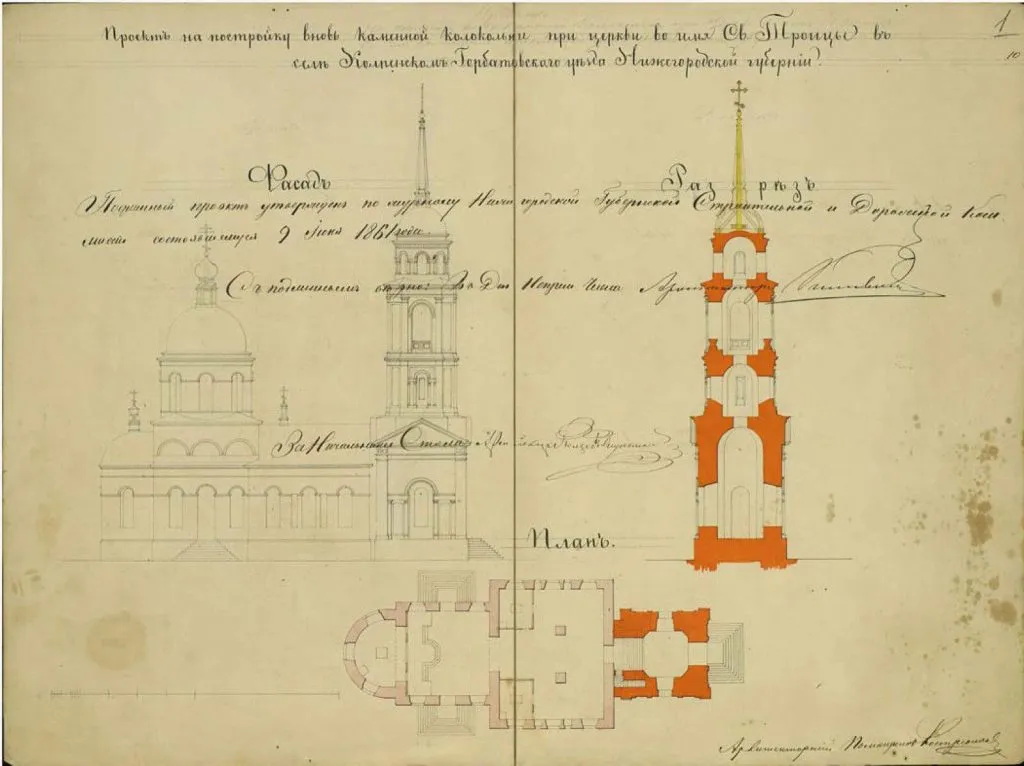 Проектъ на постройку вновь каменной колокольни при церкви во имя Св. Троицы въ
селѣ Колпенскомъ Горбатовскаго уѣзда Нижегородской губерніи.
1
10
Фасадъ
Разрѣзъ
проэктъ утвержденъ по журналу Нижегородской Губернской Строительной и Дорожной Ком
мисіи состоявшемуся 9 Іюня 1861 года.
Съ подлиннымъ вѣрно: Архитекторъ
За Начальника Стола
Планъ.
Архитекторскій Помощникъ